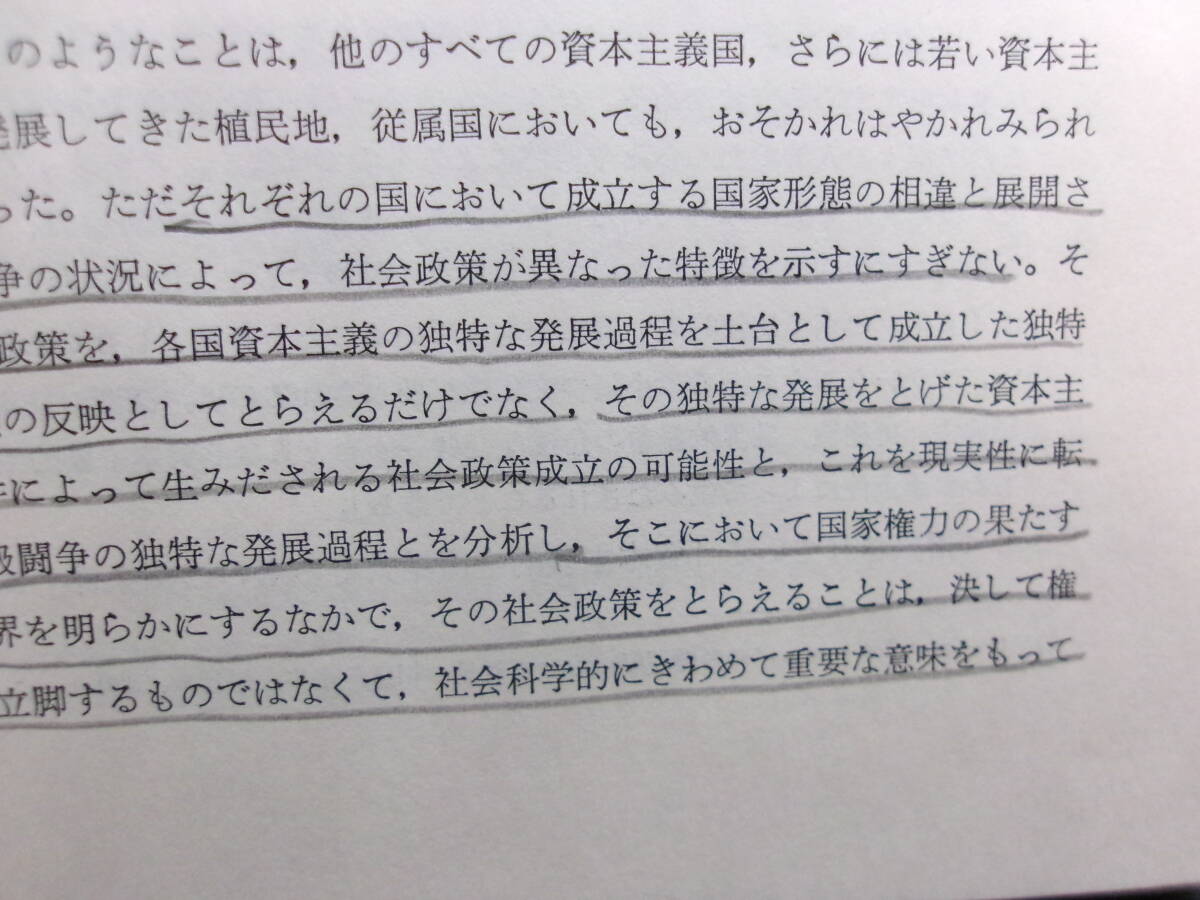 のようなことは，他のすべての資本主義国，さらには若い資本主
発展してきた植民地，従属国においても，おそかれはやかれみられ
った。ただそれぞれの国において成立する国家形態の相違と展開さ
争の状況によって，社会政策が異なった特徴を示すにすぎない。そ
政策を，各国資本主義の独特な発展過程を土台として成立した独特
の反映としてとらえるだけでなく，その独特な発展をとげた資本主
によって生みだされる社会政策成立の可能性と，これを現実性に転
級闘争の独特な発展過程とを分析し，そこにおいて国家権力の果たす
界を明らかにするなかで，その社会政策をとらえることは，決して権
立脚するものではなくて，社会科学的にきわめて重要な意味をもって